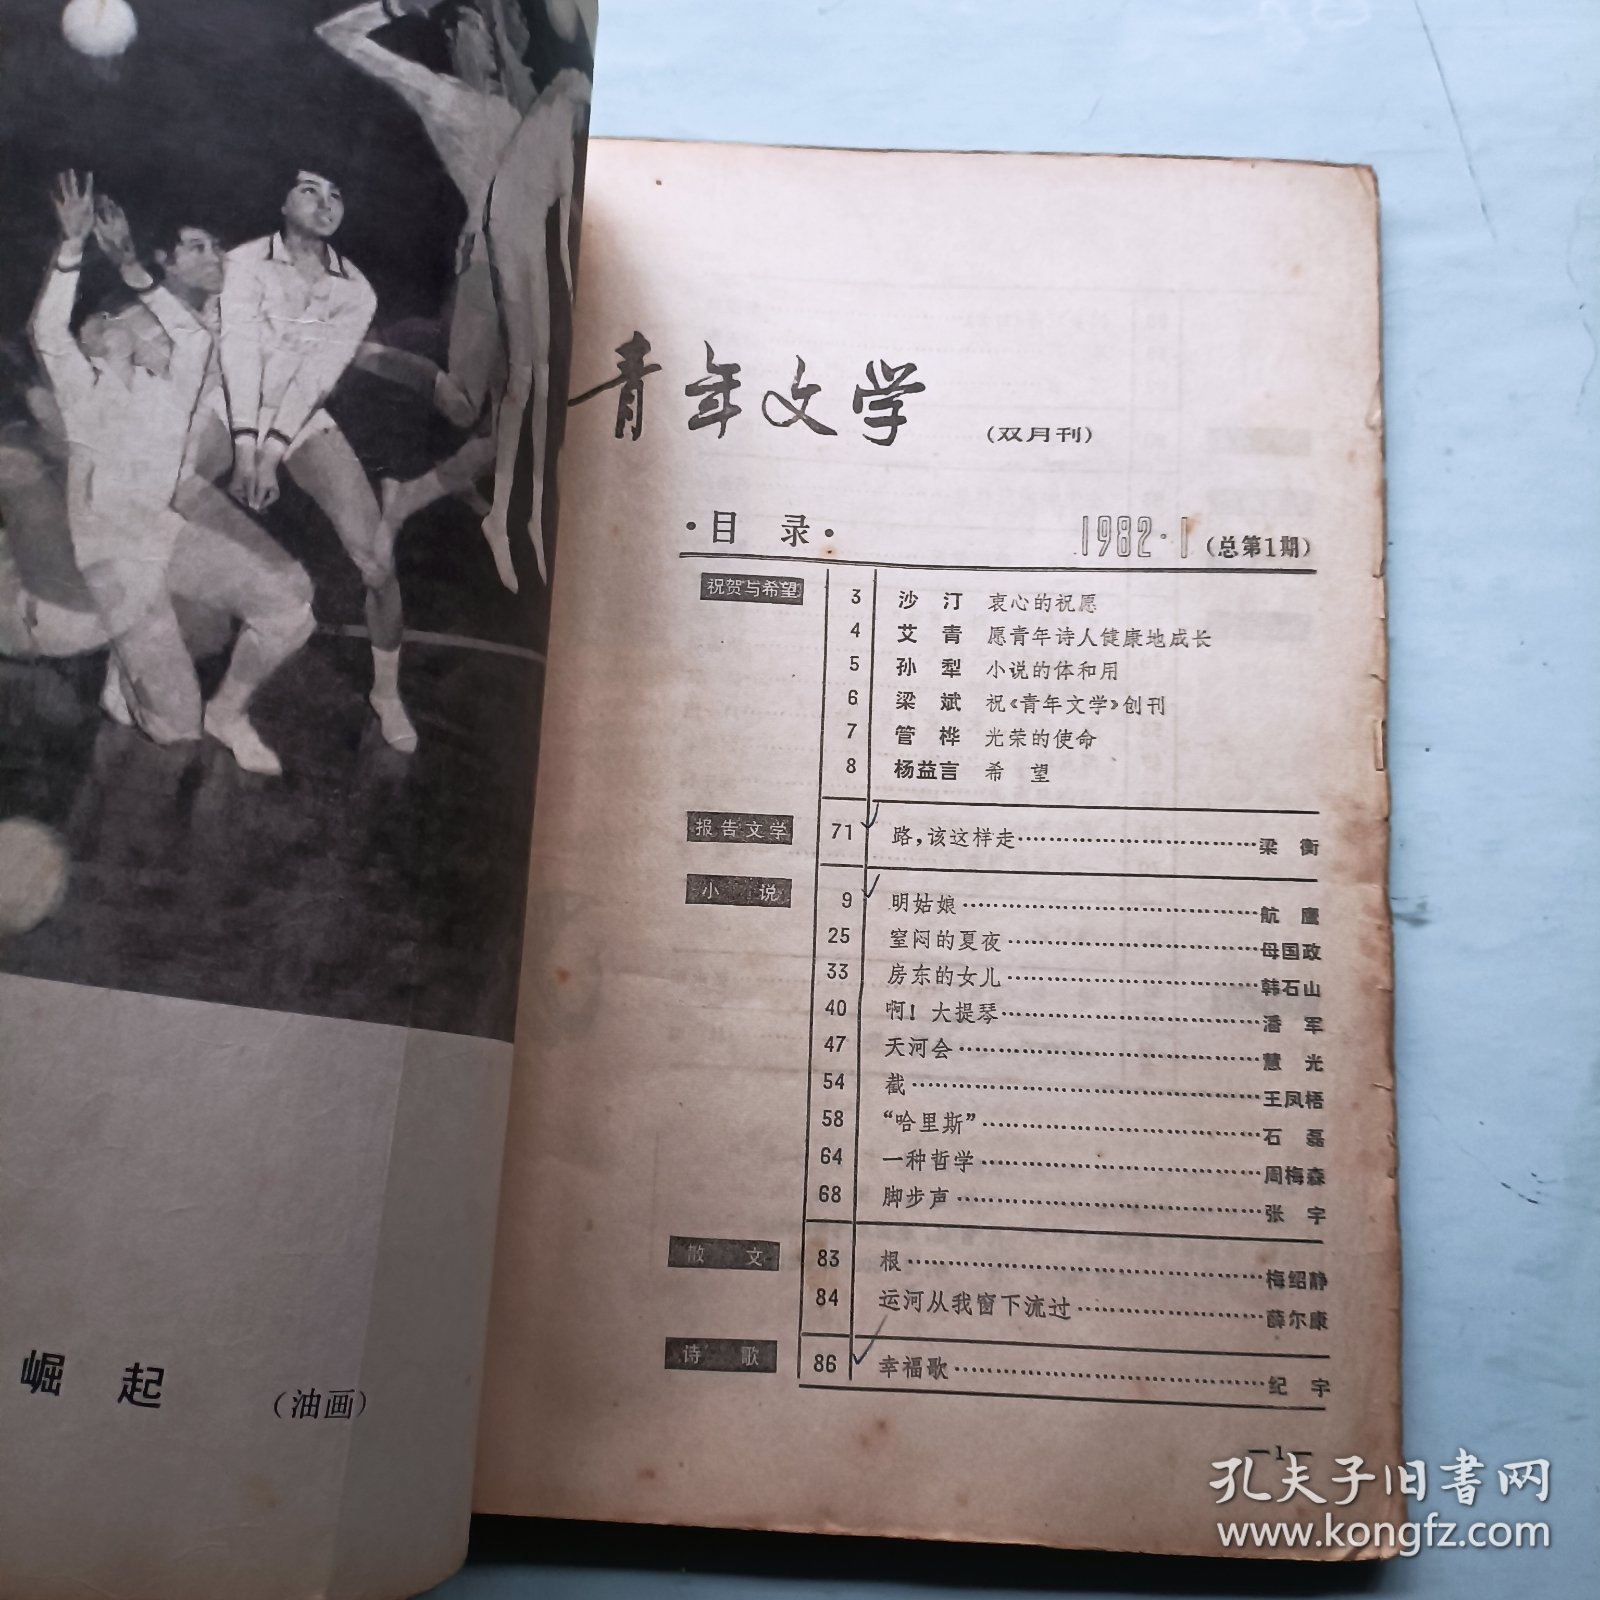 崛起（油画）
青年文学（双月刊）
·目录· 1982·1（总第1期）
祝贺与希望
3 沙汀 衷心的祝愿
4 艾青 愿青年诗人健康地成长
5 孙犁 小说的体和用
6 梁斌 祝《青年文学》创刊
7 管桦 光荣的使命
8 杨益言 希望
报告文学
71 路，该这样走……梁衡
小说
9 明姑娘……航鹰
25 窒闷的夏夜……母国政
33 房东的女儿……韩石山
40 啊！大提琴……潘军
47 天河会……慧光
54 截……王凤梧
58 “哈里斯”……石磊
64 一种哲学……周梅森
68 脚步声……张宇
散文
83 根……梅绍静
84 运河从我窗下流过……薛尔康
诗歌
86 幸福歌……纪宇
—1—
孔夫子旧书网
www.kongfz.com